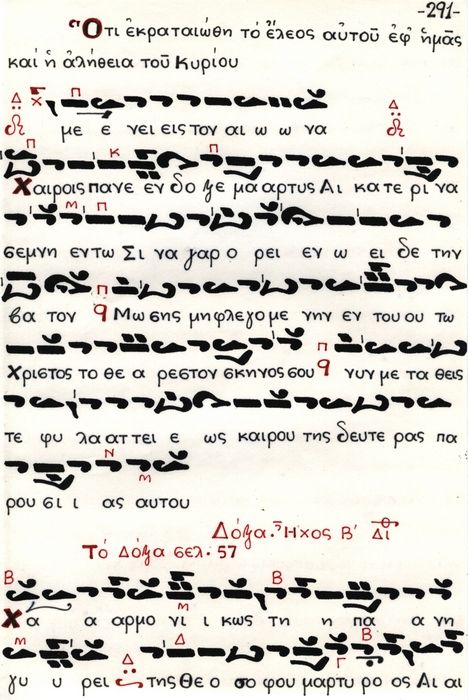 -291-
Ὅτι ἐκραταιώθη τό ἔλεος αὐτοῦ ἐφ' ἡμᾶς
καί ἡ ἀλήθεια τοῦ Κυρίου
με ε νει εις τον αι ω ω να
Χαιροις πανε εν δο ξε μα αρτυς Αι κα τε ρι να
σεμνη εν τω Σι να γαρ ο ρει εν ω ει δε την
βα τον Μω σης μη φλεγο με νην εν του ου τω
Χριστος το θε α ρεστον σκηνος σου νυν με τα θεις
τε φυ λα ατ τει ε ως καιρου της δευτε ρας πα
ρου σι ι ας αυτου
Δόξα. Ἦχος Β' Δι
Τό Δόξα σελ. 57
Χα α αρμο νι ι κως τη η πα α νη
γυ υ ρει της Θε ο σο φου μαρτυ ρο ος Αι αι